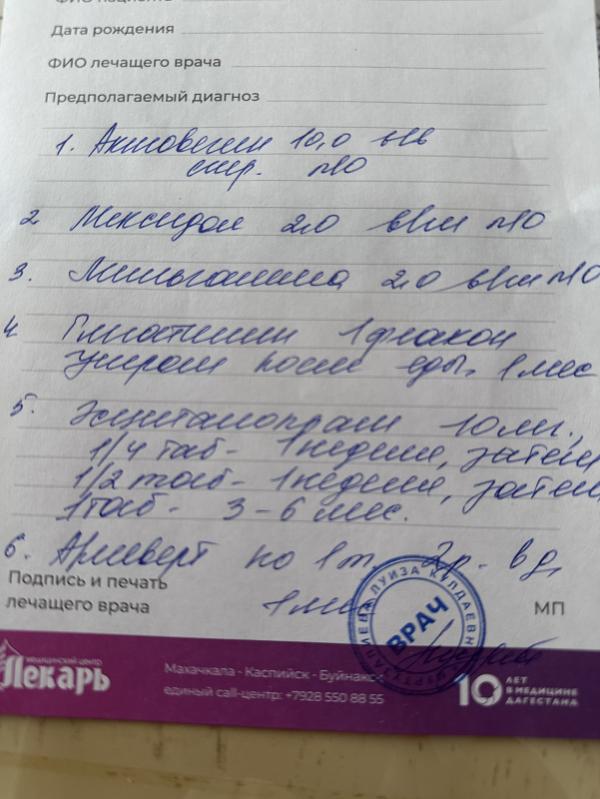 ФИО пациента
Дата рождения
ФИО лечащего врача
Предполагаемый диагноз
1. Актовегин 10,0 в/в
стр. №10
2 Мексидол 2.0 в/м №10
3. Мильгамма 2,0 в/м №10
4 Глиатилин 1 флакон
утром после еды, 1 мес
5. Эсциталопрам 10 мг,
1/4 таб - 1 неделя, затем
1/2 таб - 1 неделя, затем,
1 таб - 3-6 мес.
6. Арлеверт по 1 т. 2 р. в д,
1 мес
Подпись и печать
лечащего врача
МП
ЛУИЗА КУПДАЕВН
ВРАЧ
медицинский центр
Лекарь
Махачкала - Каспийск - Буйнакск
единый call-центр: +7928 550 88 55
10 ЛЕТ
В МЕДИЦИНЕ
ДАГЕСТАНА